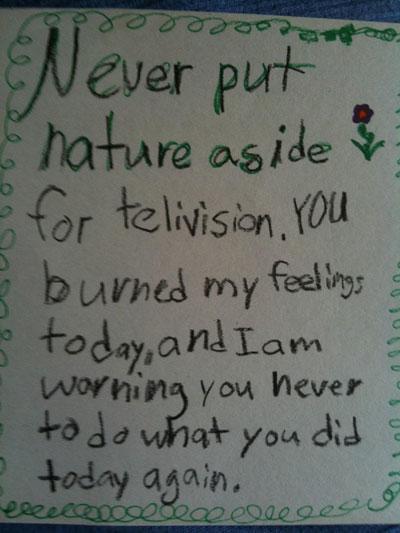 Never put
nature aside
for telivision. YOU
burned my feelings
today, and I am
worning you never
to do what you did
today again.